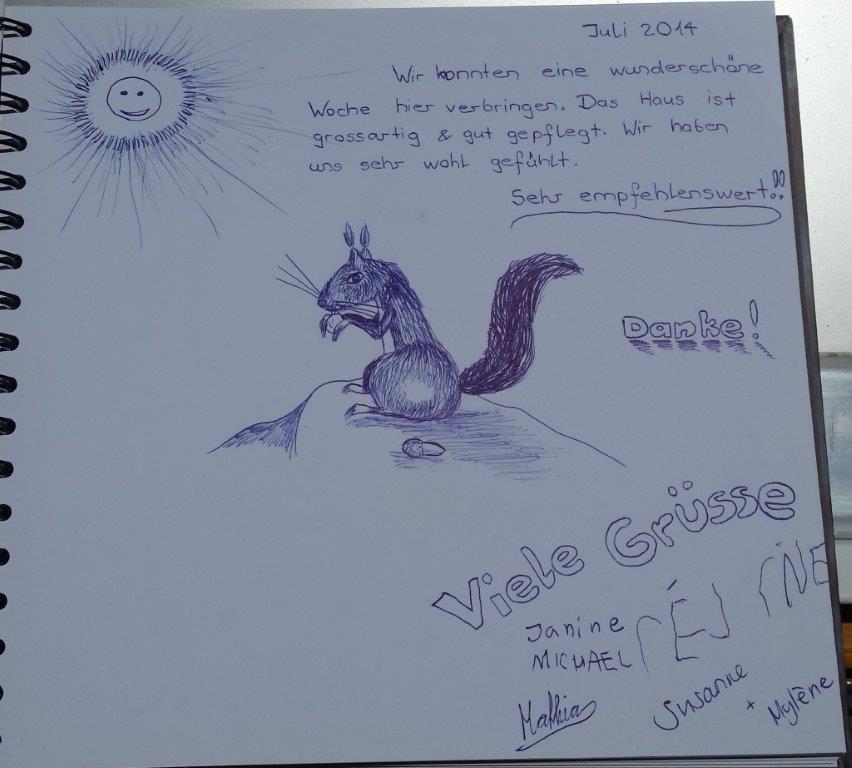 Juli 2014
Wir konnten eine wunderschöne
Woche hier verbringen. Das Haus ist
grossartig & gut gepflegt. Wir haben
uns sehr wohl gefühlt.
Sehr empfehlenswert!!
Danke!
Viele Grüsse
Janine
MICHAEL
Susanne
+ Mylène